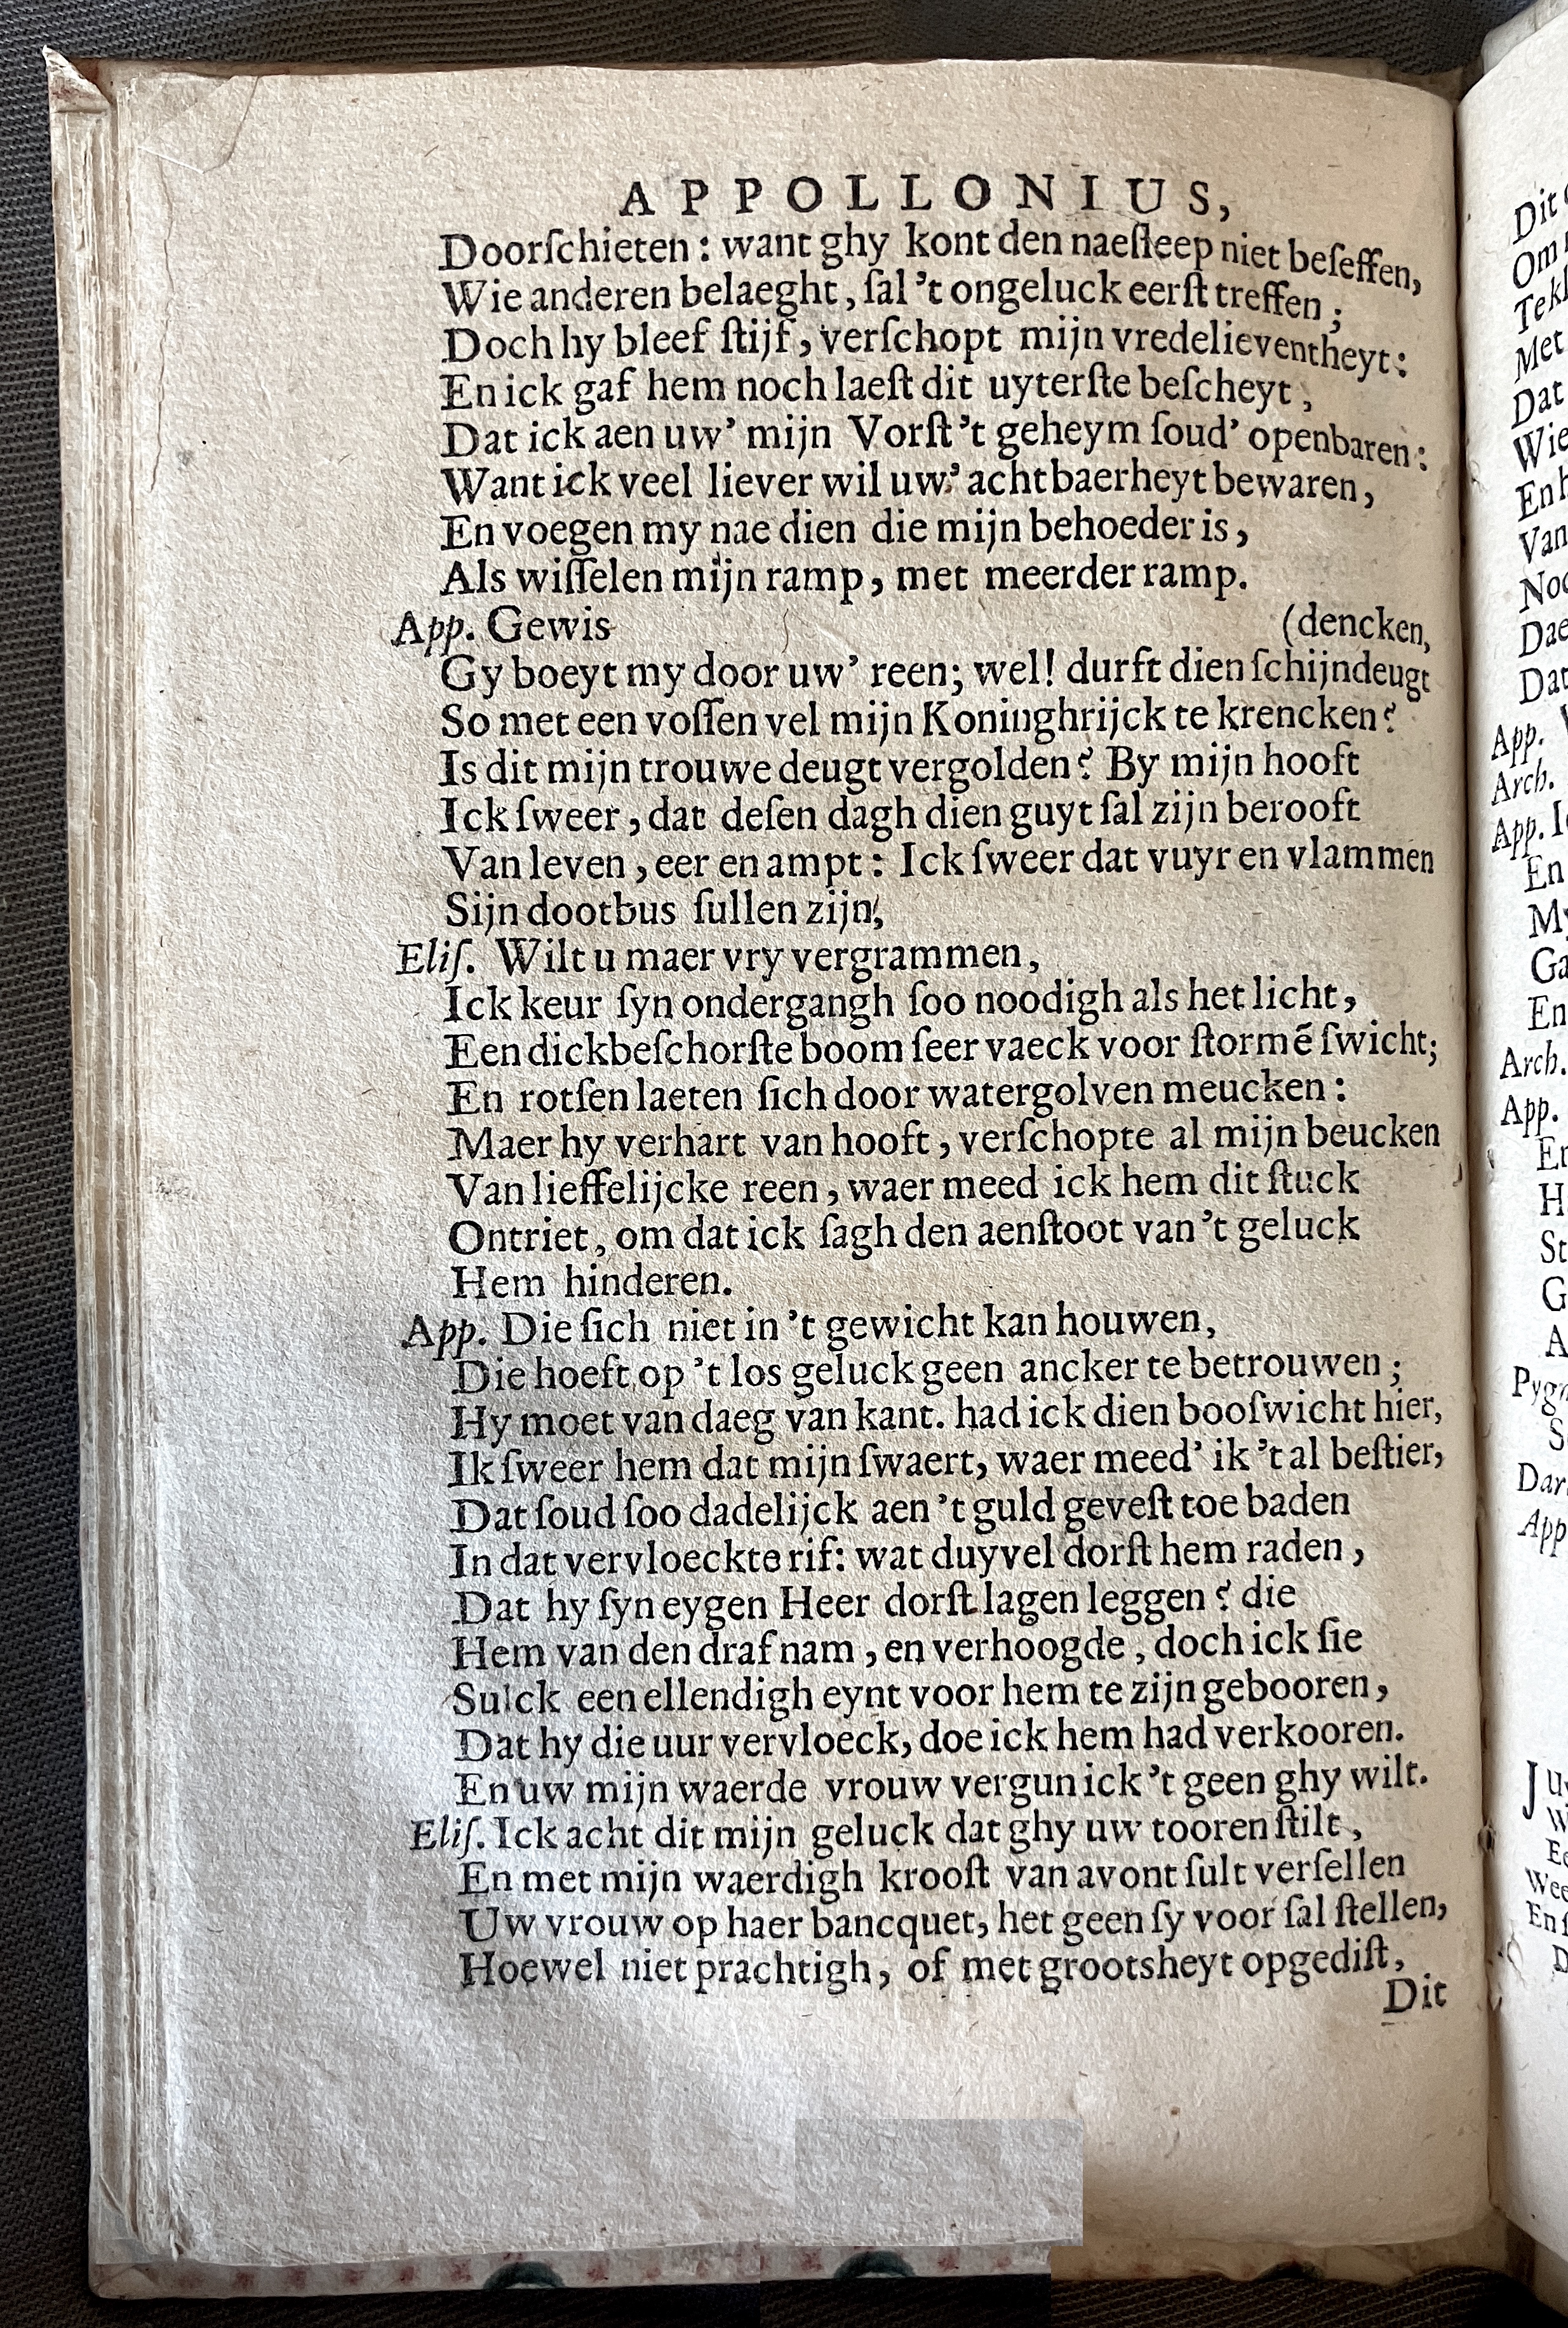 APPOLLONIUS,
Doorſchieten: want ghy kont den naeſleep niet beſeffen,
Wie anderen belaeght, ſal 't ongeluck eerſt treffen;
Doch hy bleef ſtijf, verſchopt mijn vredelieventheyt:
En ick gaf hem noch laeſt dit uyterſte beſcheyt,
Dat ick aen uw' mijn Vorſt 't geheym ſoud' openbaren:
Want ick veel liever wil uw' achtbaerheyt bewaren,
En voegen my nae dien die mijn behoeder is,
Als wiſſelen mijn ramp, met meerder ramp.
App. Gewis (dencken,
Gy boeyt my door uw' reen; wel! durft dien ſchijndeugt
So met een voſſen vel mijn Koninghrijck te krencken?
Is dit mijn trouwe deugt vergolden? By mijn hooft
Ick ſweer, dat deſen dagh dien guyt ſal zijn berooft
Van leven, eer en ampt: Ick ſweer dat vuyr en vlammen
Sijn dootbus ſullen zijn;
Eliſ. Wilt u maer vry vergrammen,
Ick keur ſyn ondergangh ſoo noodigh als het licht,
Een dickbeſchorſte boom ſeer vaeck voor ſtormẽ ſwicht;
En rotſen laeten ſich door watergolven meucken:
Maer hy verhart van hooft, verſchopte al mijn beucken
Van lieffelijcke reen, waer meed ick hem dit ſtuck
Ontriet, om dat ick ſagh den aenſtoot van 't geluck
Hem hinderen.
App. Die ſich niet in 't gewicht kan houwen,
Die hoeft op 't los geluck geen ancker te betrouwen;
Hy moet van daeg van kant. had ick dien booſwicht hier,
Ik ſweer hem dat mijn ſwaert, waer meed' ik 't al beſtier,
Dat ſoud ſoo dadelijck aen 't guld geveſt toe baden
In dat vervloeckte rif: wat duyvel dorſt hem raden,
Dat hy ſyn eygen Heer dorſt lagen leggen? die
Hem van den draf nam, en verhoogde, doch ick ſie
Sulck een ellendigh eynt voor hem te zijn gebooren,
Dat hy die uur vervloeck, doe ick hem had verkooren.
En uw mijn waerde vrouw vergun ick 't geen ghy wilt.
Eliſ. Ick acht dit mijn geluck dat ghy uw tooren ſtilt,
En met mijn waerdigh krooſt van avont ſult verſellen
Uw vrouw op haer bancquet, het geen ſy voor ſal ſtellen,
Hoewel niet prachtigh, of met grootsheyt opgediſt,
Dit
Dit
Met
Dat
Wie
Van
App.
Arch.
App.
En
Arch.
App.